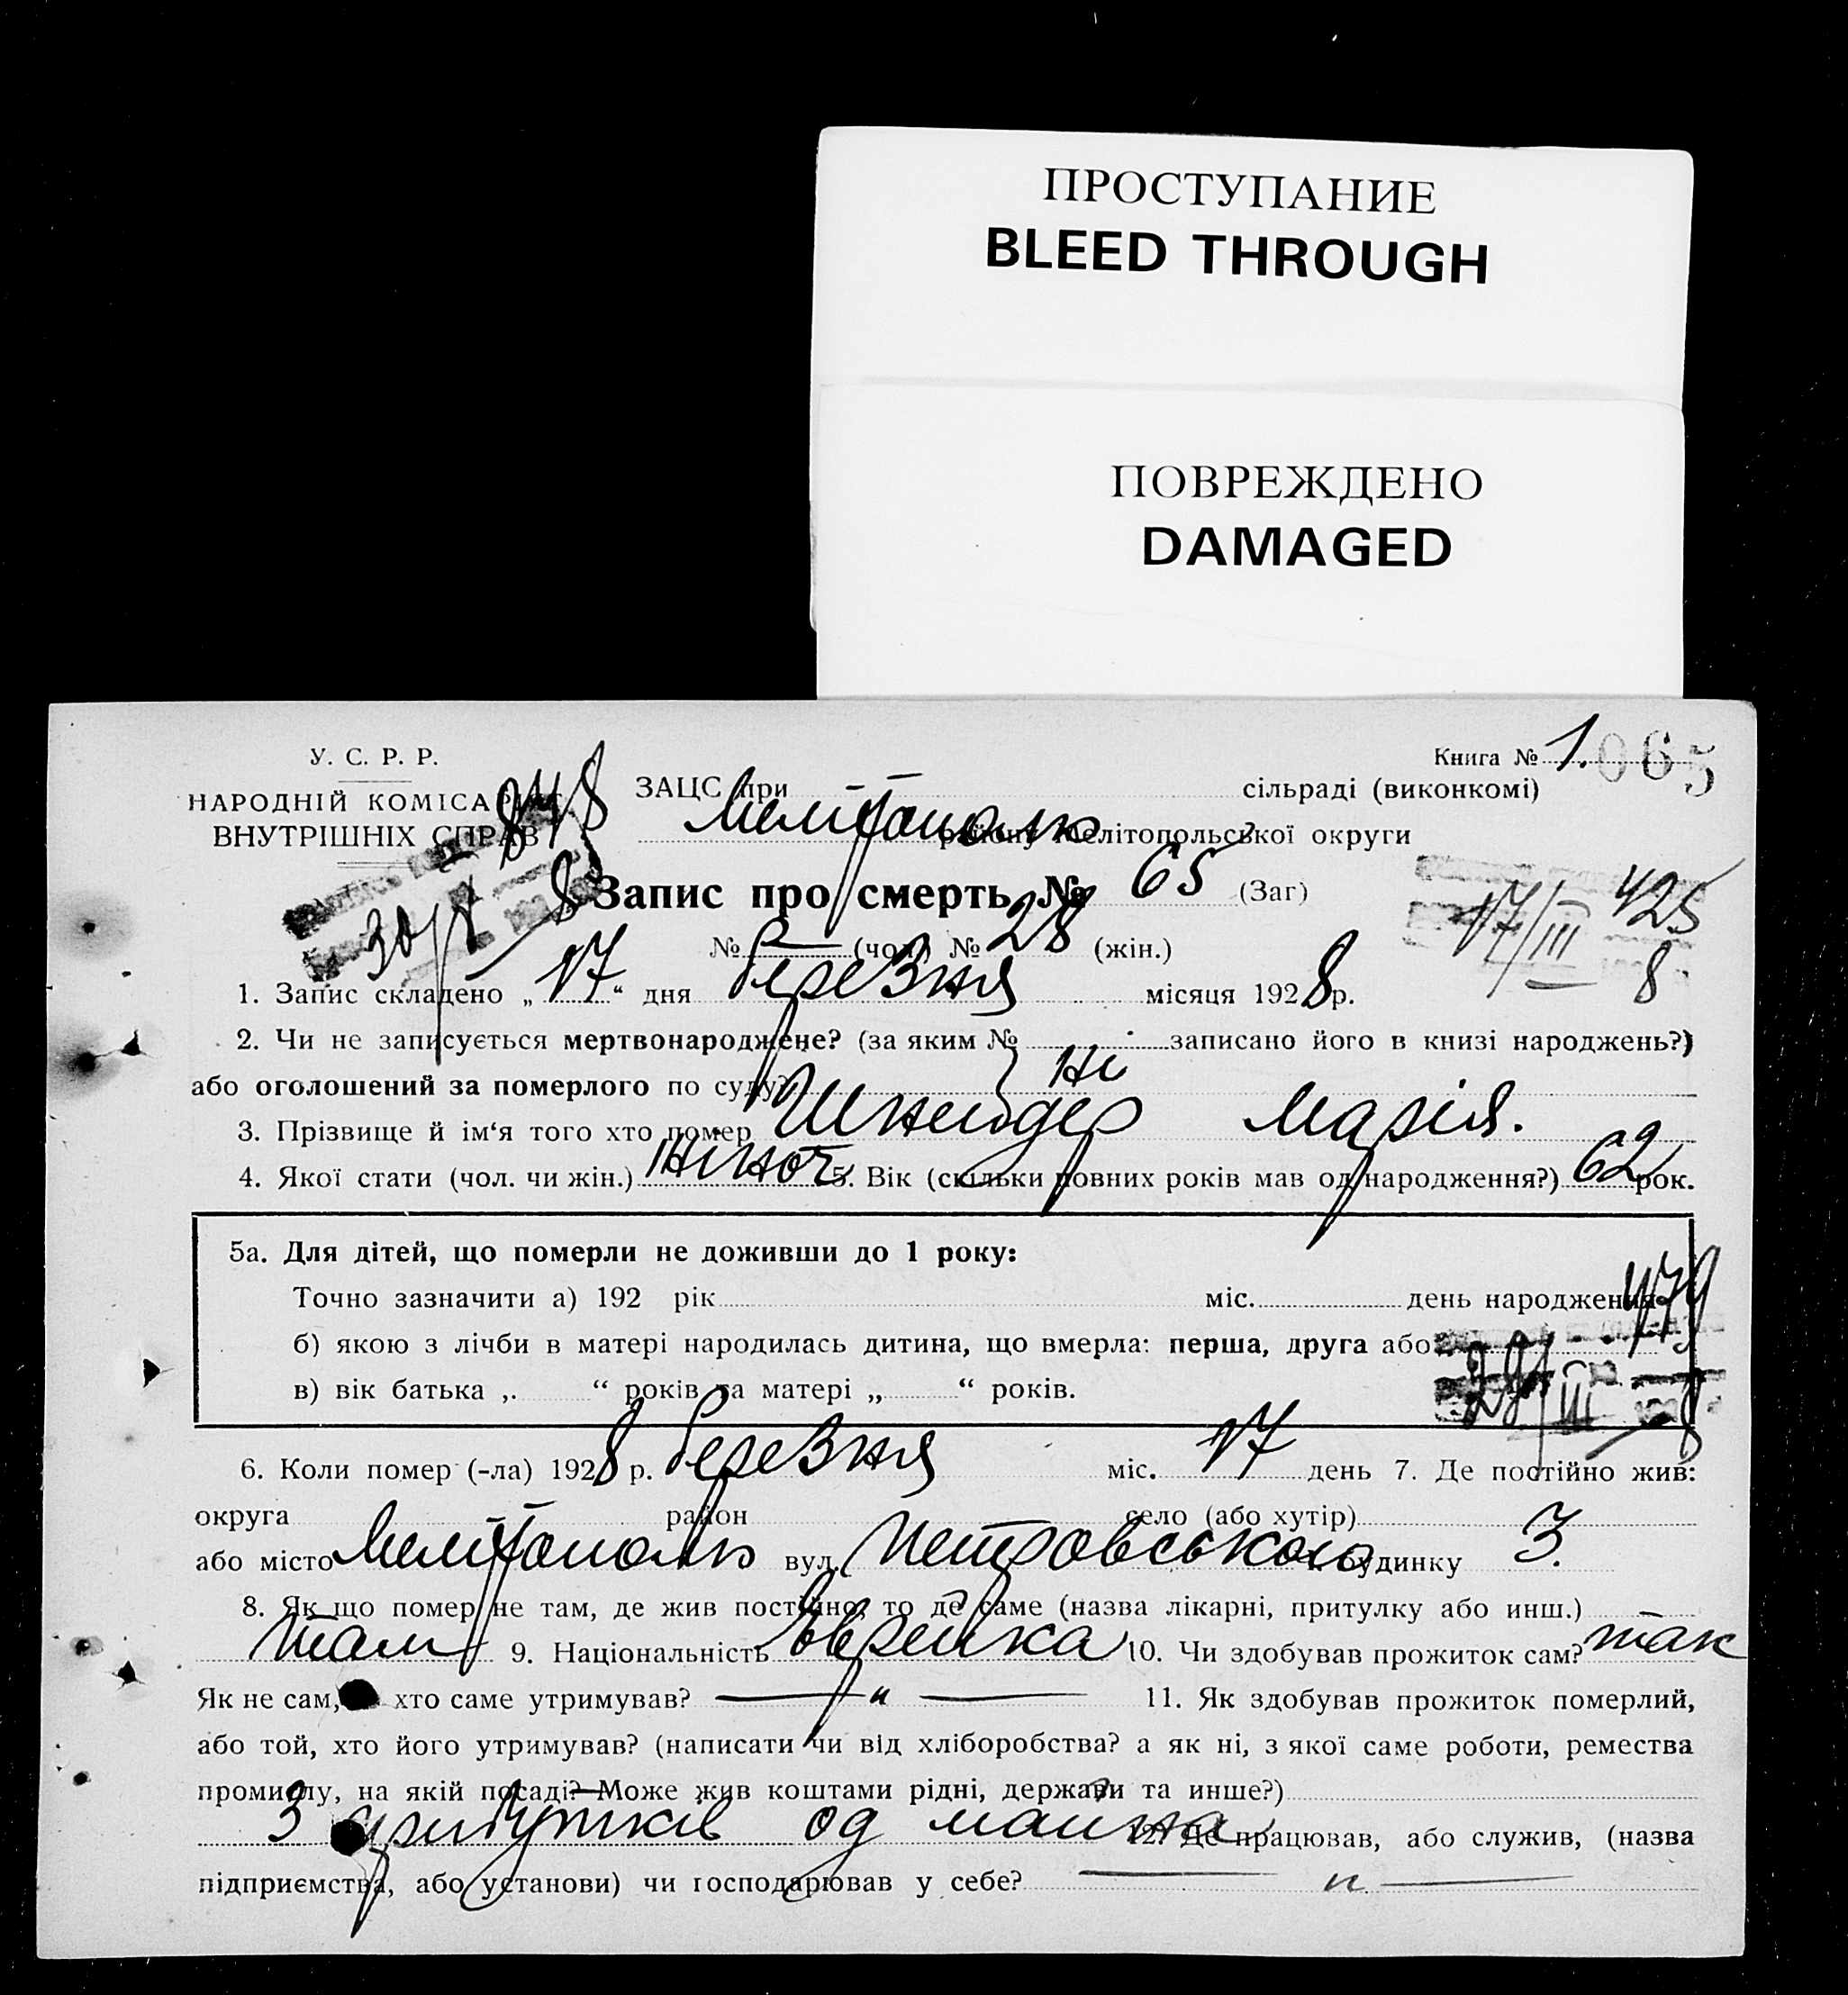 ПРОСТУПАНИЕ
BLEED THROUGH
ПОВРЕЖДЕНО
DAMAGED
У. С. Р. Р.
НАРОДНІЙ КОМІСАРІАТ
ВНУТРІШНІХ СПРАВ
Книга № 1. 065
ЗАЦС при сільраді (виконкомі)
Мелітополь району Мелітопольської округи
Запис про смерть № 65 (Заг)
№ — (чол.) № 28 (жін.)
17/III 425
8
30/
1. Запис складено „17“ дня березня місяця 1928 р.
2. Чи не записується мертвонароджене? (за яким № записано його в книзі народжень?)
або оголошений за померлого по суду? Ні
3. Прізвище й ім‘я того хто помер Шнейдер Марія.
4. Якої стати (чол. чи жін.) жіноч. 5. Вік (скільки повних років мав од народження?) 62 рок.
5а. Для дітей, що померли не доживши до 1 року:
Точно зазначити а) 192 рік міс. день народження
б) якою з лічби в матері народилась дитина, що вмерла: перша, друга або
в) вік батька „ “ років та матері „ “ років.
479
29/III 8
6. Коли помер (-ла) 1928 р. березня міс. 17 день 7. Де постійно жив:
округа район село (або хутір)
або місто Мелітополь вул. Петровського будинку 3.
8. Як що помер не там, де жив постійно, то де саме (назва лікарні, притулку або инш.)
там 9. Національність Єврейка 10. Чи здобував прожиток сам? так
Як не сам, хто саме утримував? — „ — 11. Як здобував прожиток померлий,
або той, хто його утримував? (написати чи від хліборобства? а як ні, з якої саме роботи, ремества
промислу, на якій посаді? Може жив коштами рідні, держави та инше?)
З прибутків од майна 12. Де працював, або служив, (назва
підприємства, або установи) чи господарював у себе? — „ —